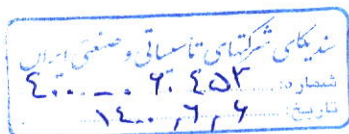 سندیکای شرکتهای تاسیساتی و صنعتی ایران
شماره: ۴۰۰-۰۶.۴۵۲
تاریخ: ۱۴۰۰,۶,۶